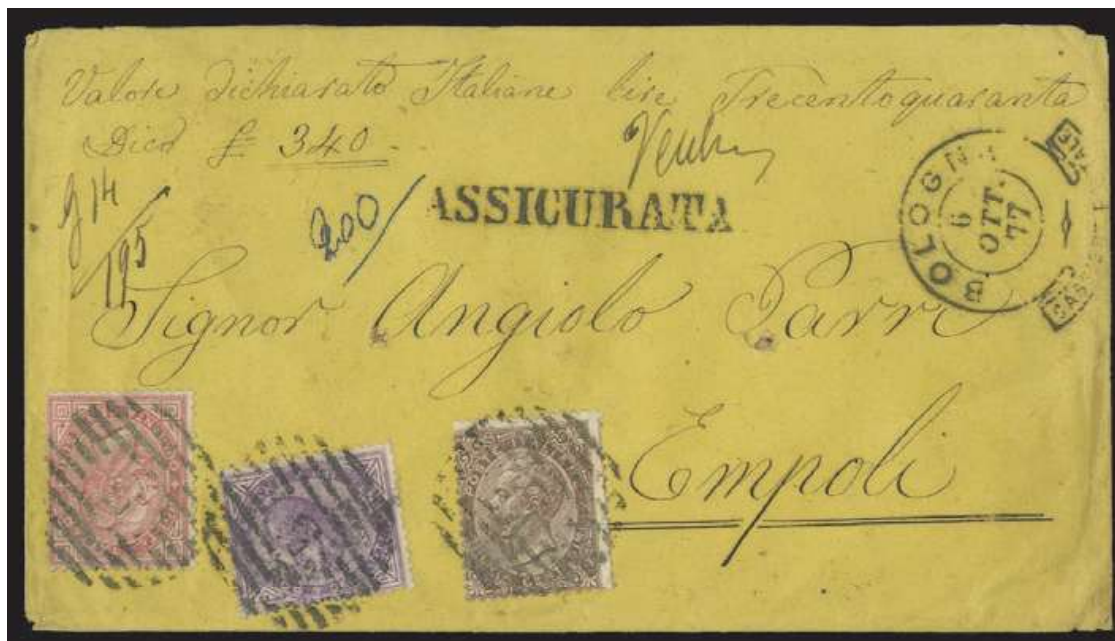 Valore dichiarato Italiane lire Trecentoquaranta
Dico £ 340.
g 14
195
200/
ASSICURATA
BOLOGNA
6
OTT.
77
Signor Angiolo Parri
Empoli